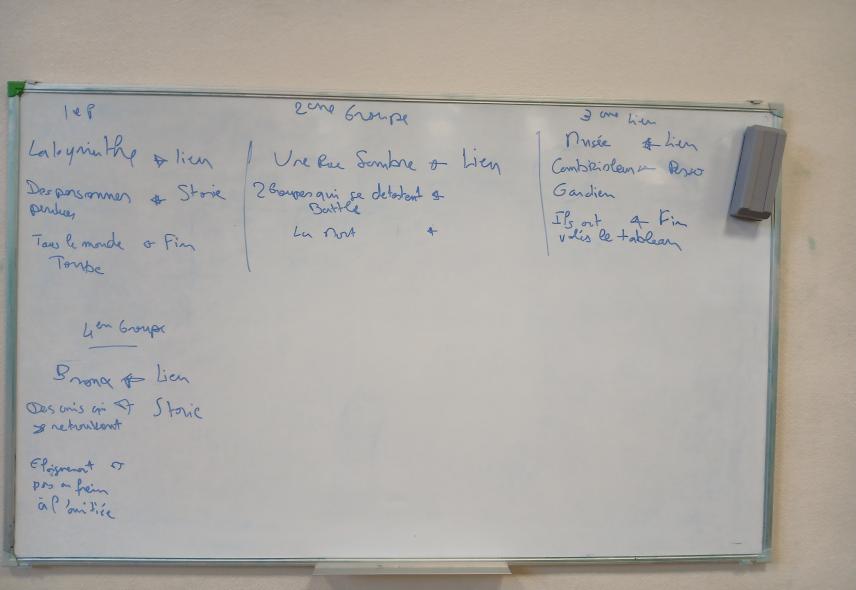 1 e P
Labyrinthe → lien
Des personnes → Storie
perdues
Tous le monde → Fin
Tombe
2eme Groupe
Une Rue Sombre ← Lien
2 Groupes qui se detestent ←
Battle
La Mort ←
3eme Lien
Musée ← Lien
Cambrioleur ← Perso
Gardien
Ils ont ← Fin
volés le tableau
4em Groupe
Bronx ← Lien
Des amis qui ← Storie
se retrouvent
Eloignement ←
pas un frein
à l'amitiée